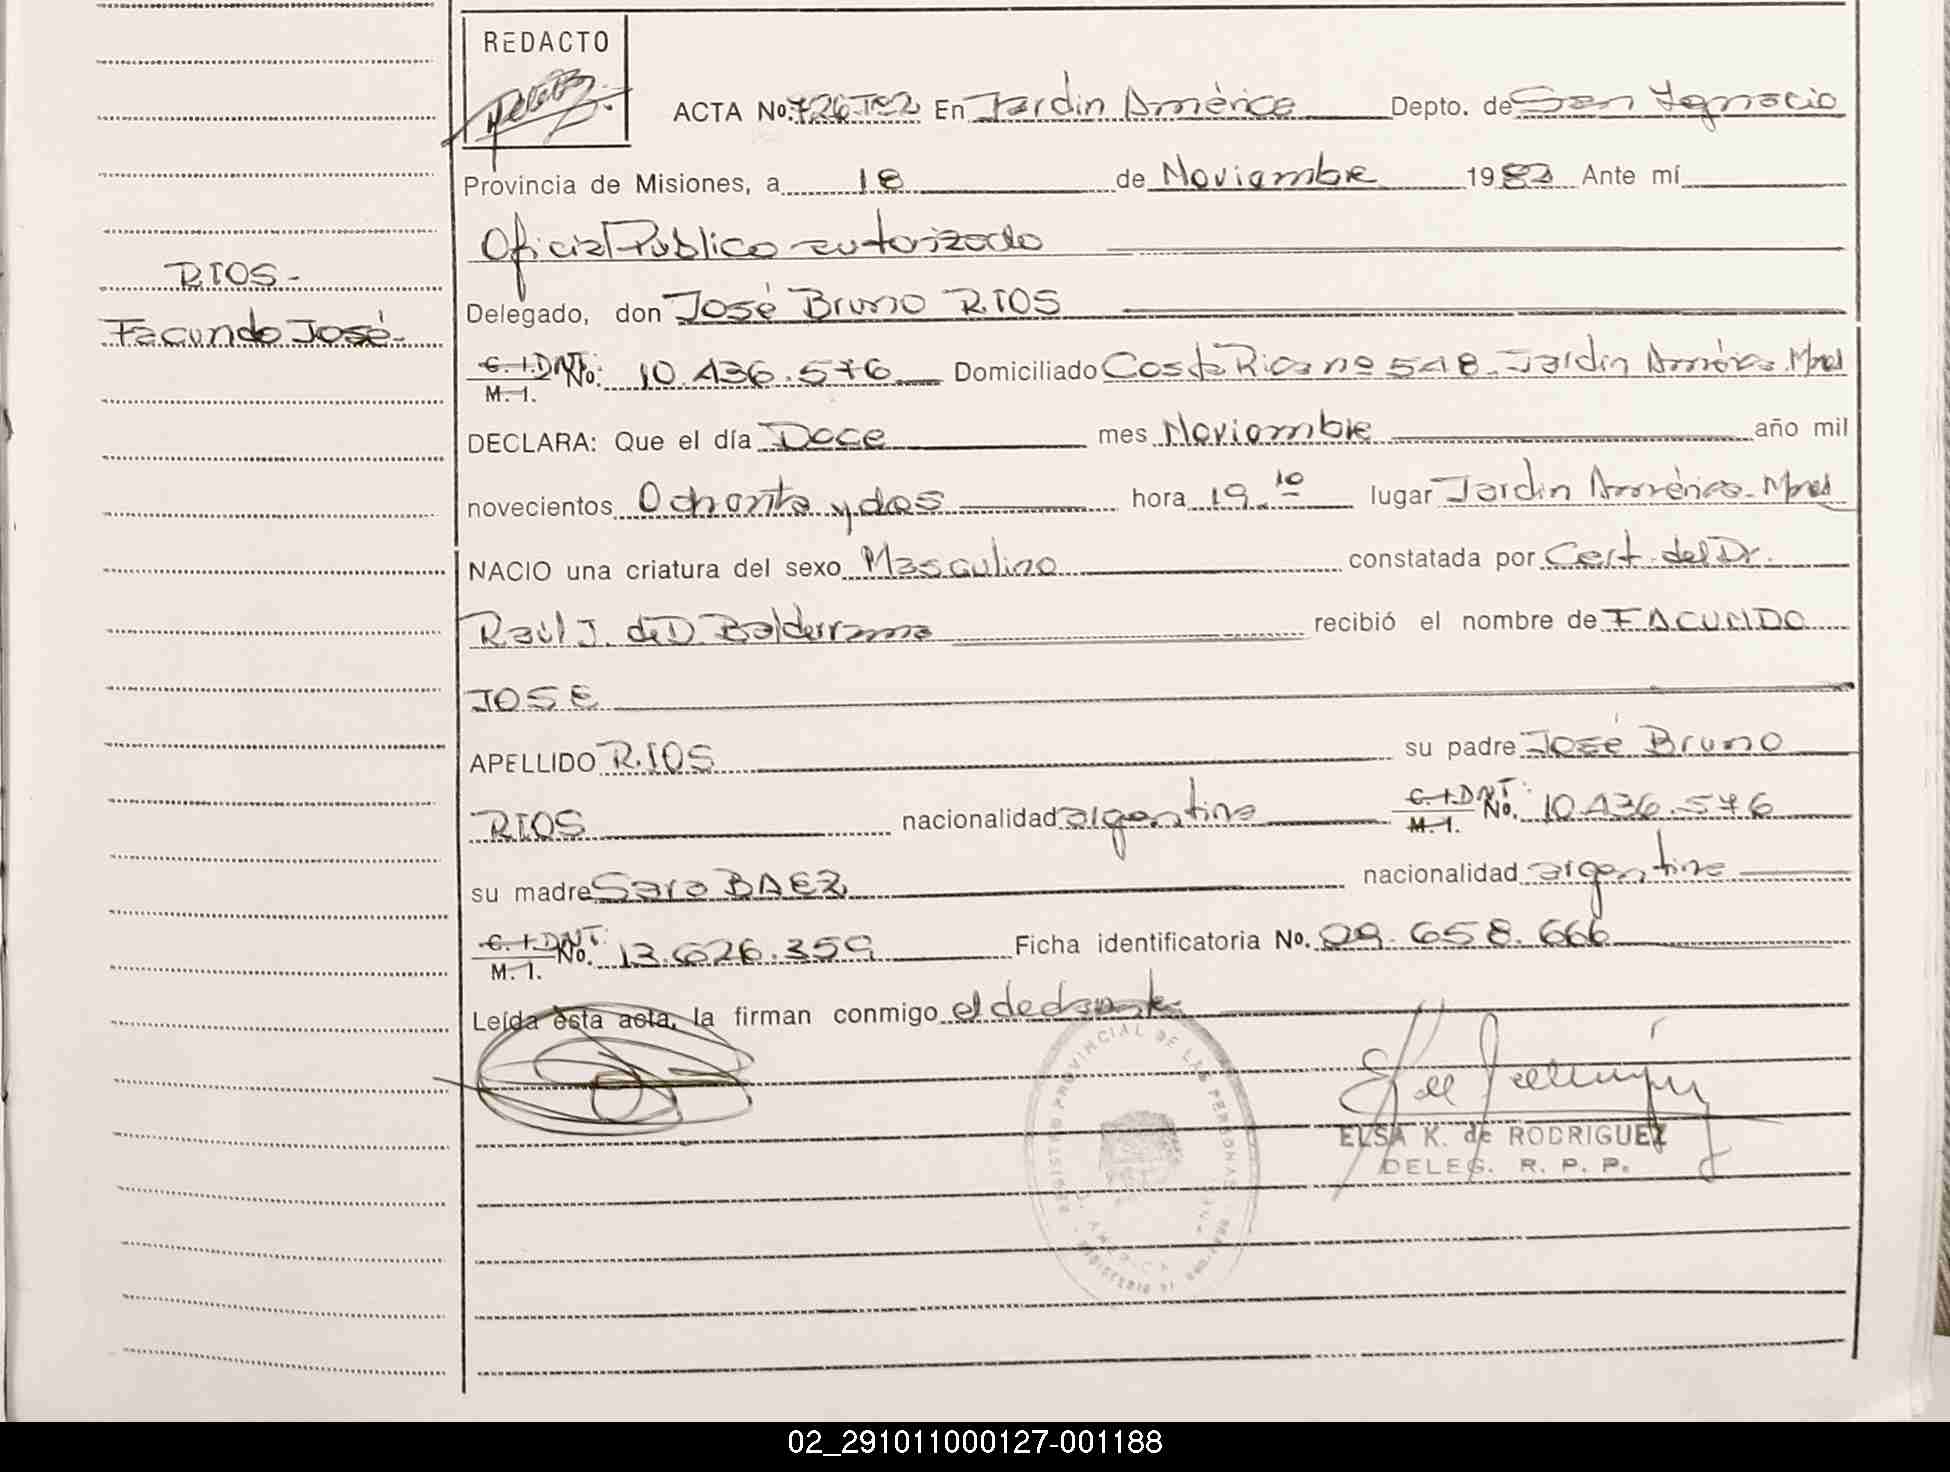 REDACTO
ACTA No. 726-Tº2 En Jardin América Depto. de San Ignacio
Provincia de Misiones, a 18 de Noviembre 1982 Ante mí
Oficial Público autorizado
RIOS-
Delegado, don José Bruno RIOS
Facundo José-
C. I. DNI. M. I. No. 10.436.576 Domiciliado Costa Rica nº 548. Jardin América. Mnes
DECLARA: Que el día Doce mes Noviembre año mil
novecientos Ochenta y dos hora 19.10 lugar Jardin América-Mnes
NACIO una criatura del sexo Masculino constatada por Cert. del Dr.
Raúl J. de D. Balderrama recibió el nombre de FACUNDO
JOSE
APELLIDO RIOS su padre José Bruno
RIOS nacionalidad argentina C. I. DNI. M. I. No. 10.436.576
su madre Sara BAEZ nacionalidad argentina
C. I. DNI. M. I. No. 13.626.359 Ficha identificatoria No. 09.658.666
Leída ésta acta, la firman conmigo el declarante
REGISTRO PROVINCIAL DE LAS PERSONAS
ELSA K. de RODRIGUEZ
DELEG. R. P. P.
02_291011000127-001188